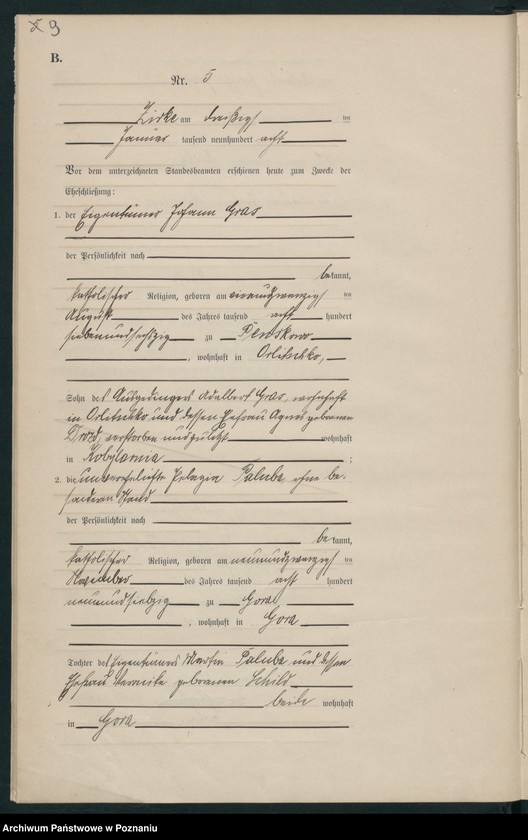 9
B.
Nr. 5
Zirke am dreißigsten
Januar tausend neunhundert acht
Vor dem unterzeichneten Standesbeamten erschienen heute zum Zwecke der
Eheschließung:
1. der Eigentümer Johann Gras
der Persönlichkeit nach
bekannt,
katholischer Religion, geboren am vierundzwanzigsten
August des Jahres tausend acht hundert
siebenundsechzig zu
, wohnhaft in Orlitschko,
Sohn des Ausgedingers Adelbert Gras, wohnhaft
in Orlitschko und dessen Ehefrau Agnes geborenen
Drozd, verstorben und zuletzt wohnhaft
in Kobylarnia ;
2. die unverehelichte Pelagia Paluba, ohne be-
sonderen Stand
der Persönlichkeit nach
bekannt,
katholischer Religion, geboren am neunundzwanzigsten
November des Jahres tausend acht hundert
neunundsiebzig zu Gora
, wohnhaft in Gora
Tochter des Eigentümers Martin Paluba und dessen
Ehefrau geborenen Schild
beide wohnhaft
in Gora
Archiwum Państwowe w Poznaniu